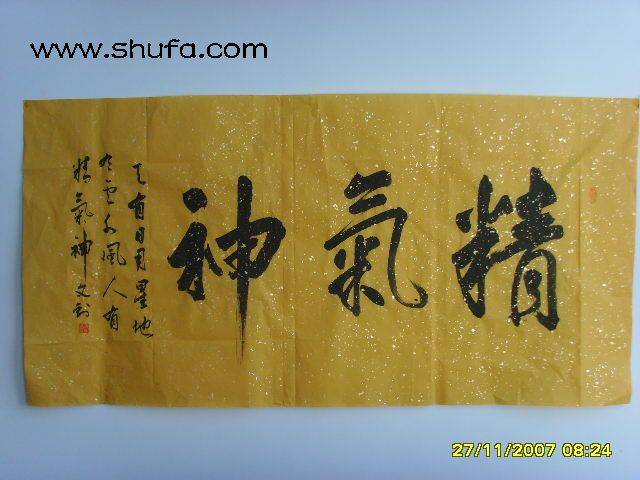 www.shufa.com
精氣神
天有日月星地
有云水風人有
精氣神 文
27/11/2007 08:24